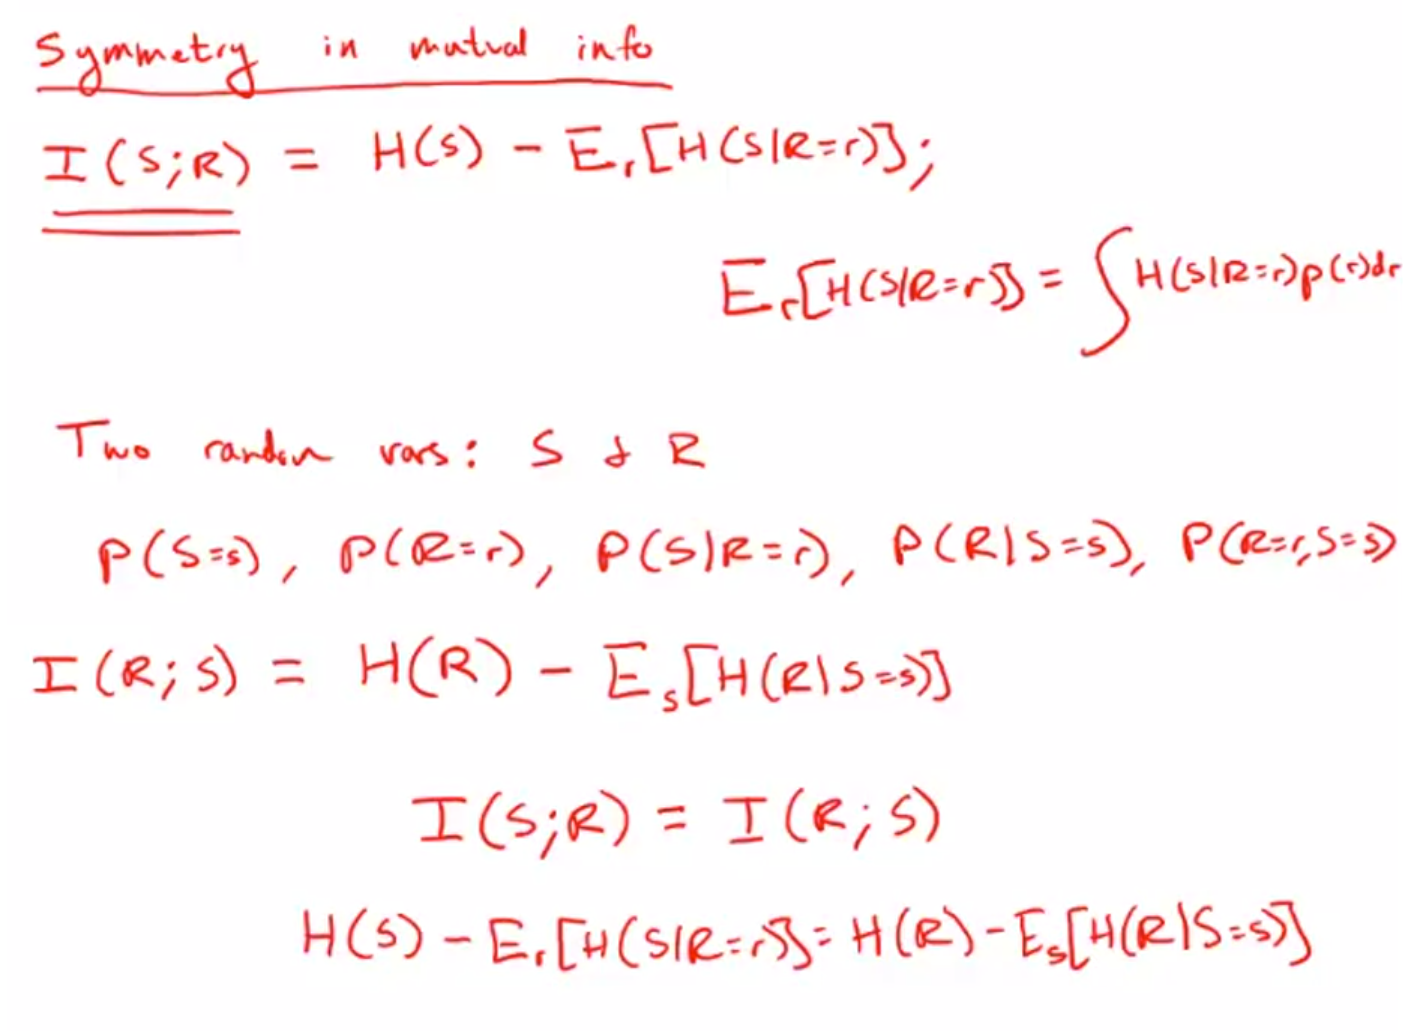 Symmetry in mutual info
I(S;R) = H(S) - E_r[H(S|R=r)];
E_r[H(S|R=r)] = ∫H(S|R=r)p(r)dr
Two random vars: S & R
P(S=s), P(R=r), P(S|R=r), P(R|S=s), P(R=r,S=s)
I(R;S) = H(R) - E_s[H(R|S=s)]
I(S;R) = I(R;S)
H(S) - E_r[H(S|R=r)] = H(R) - E_s[H(R|S=s)]